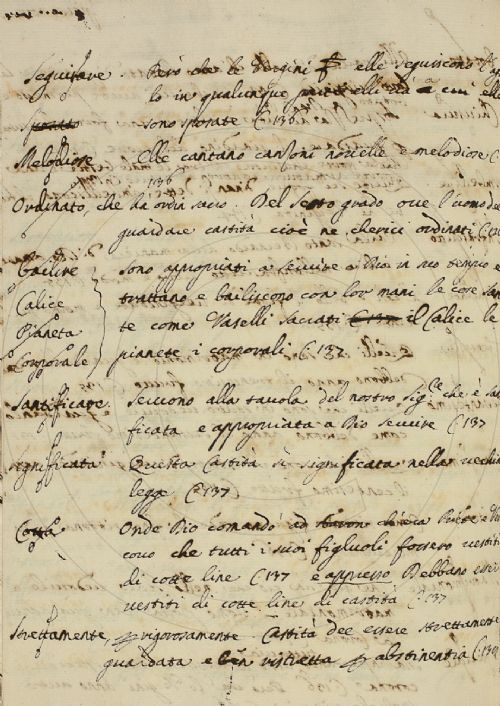 Seguitare. Però che le Vergini elle seguiscono l'
lo in qualunque parte elli và a cui
Sposato sono sposate C. 136.
Melodiose Elle cantano canzoni novelle e melodiose C
136
Ordinato, che ha ordin sacro. Del Sesto grado ove l'uomo dee
guardare castità cioè ne cherici ordinati C. 13
bailire sono appropiati a servire a Dio in suo tempio
Calice trattano e bailiscono con lor mani le cose san
Pianeta te come Vaselli sacrati C 137 il Calice le
Corporale pianete i corporali C. 137
Santificare. Servono alla tavola del nostro Sig.re che è sa
ficata e appropriata a Dio servire C 137
Significata Questa Castità è significata nella vecchia
legge C. 137
Cotta Onde Dio comandò ad Aaron ch'era Prete e
covo che tutti i suoi figluoli fossero vestiti
di cotte line C. 137 e appresso Debbano esser
vestiti di cotte line di castità C. 137
Strettamente, rigorosamente Castità dee essere strettamente
guardata e ben ristretta abstinentia C. 13